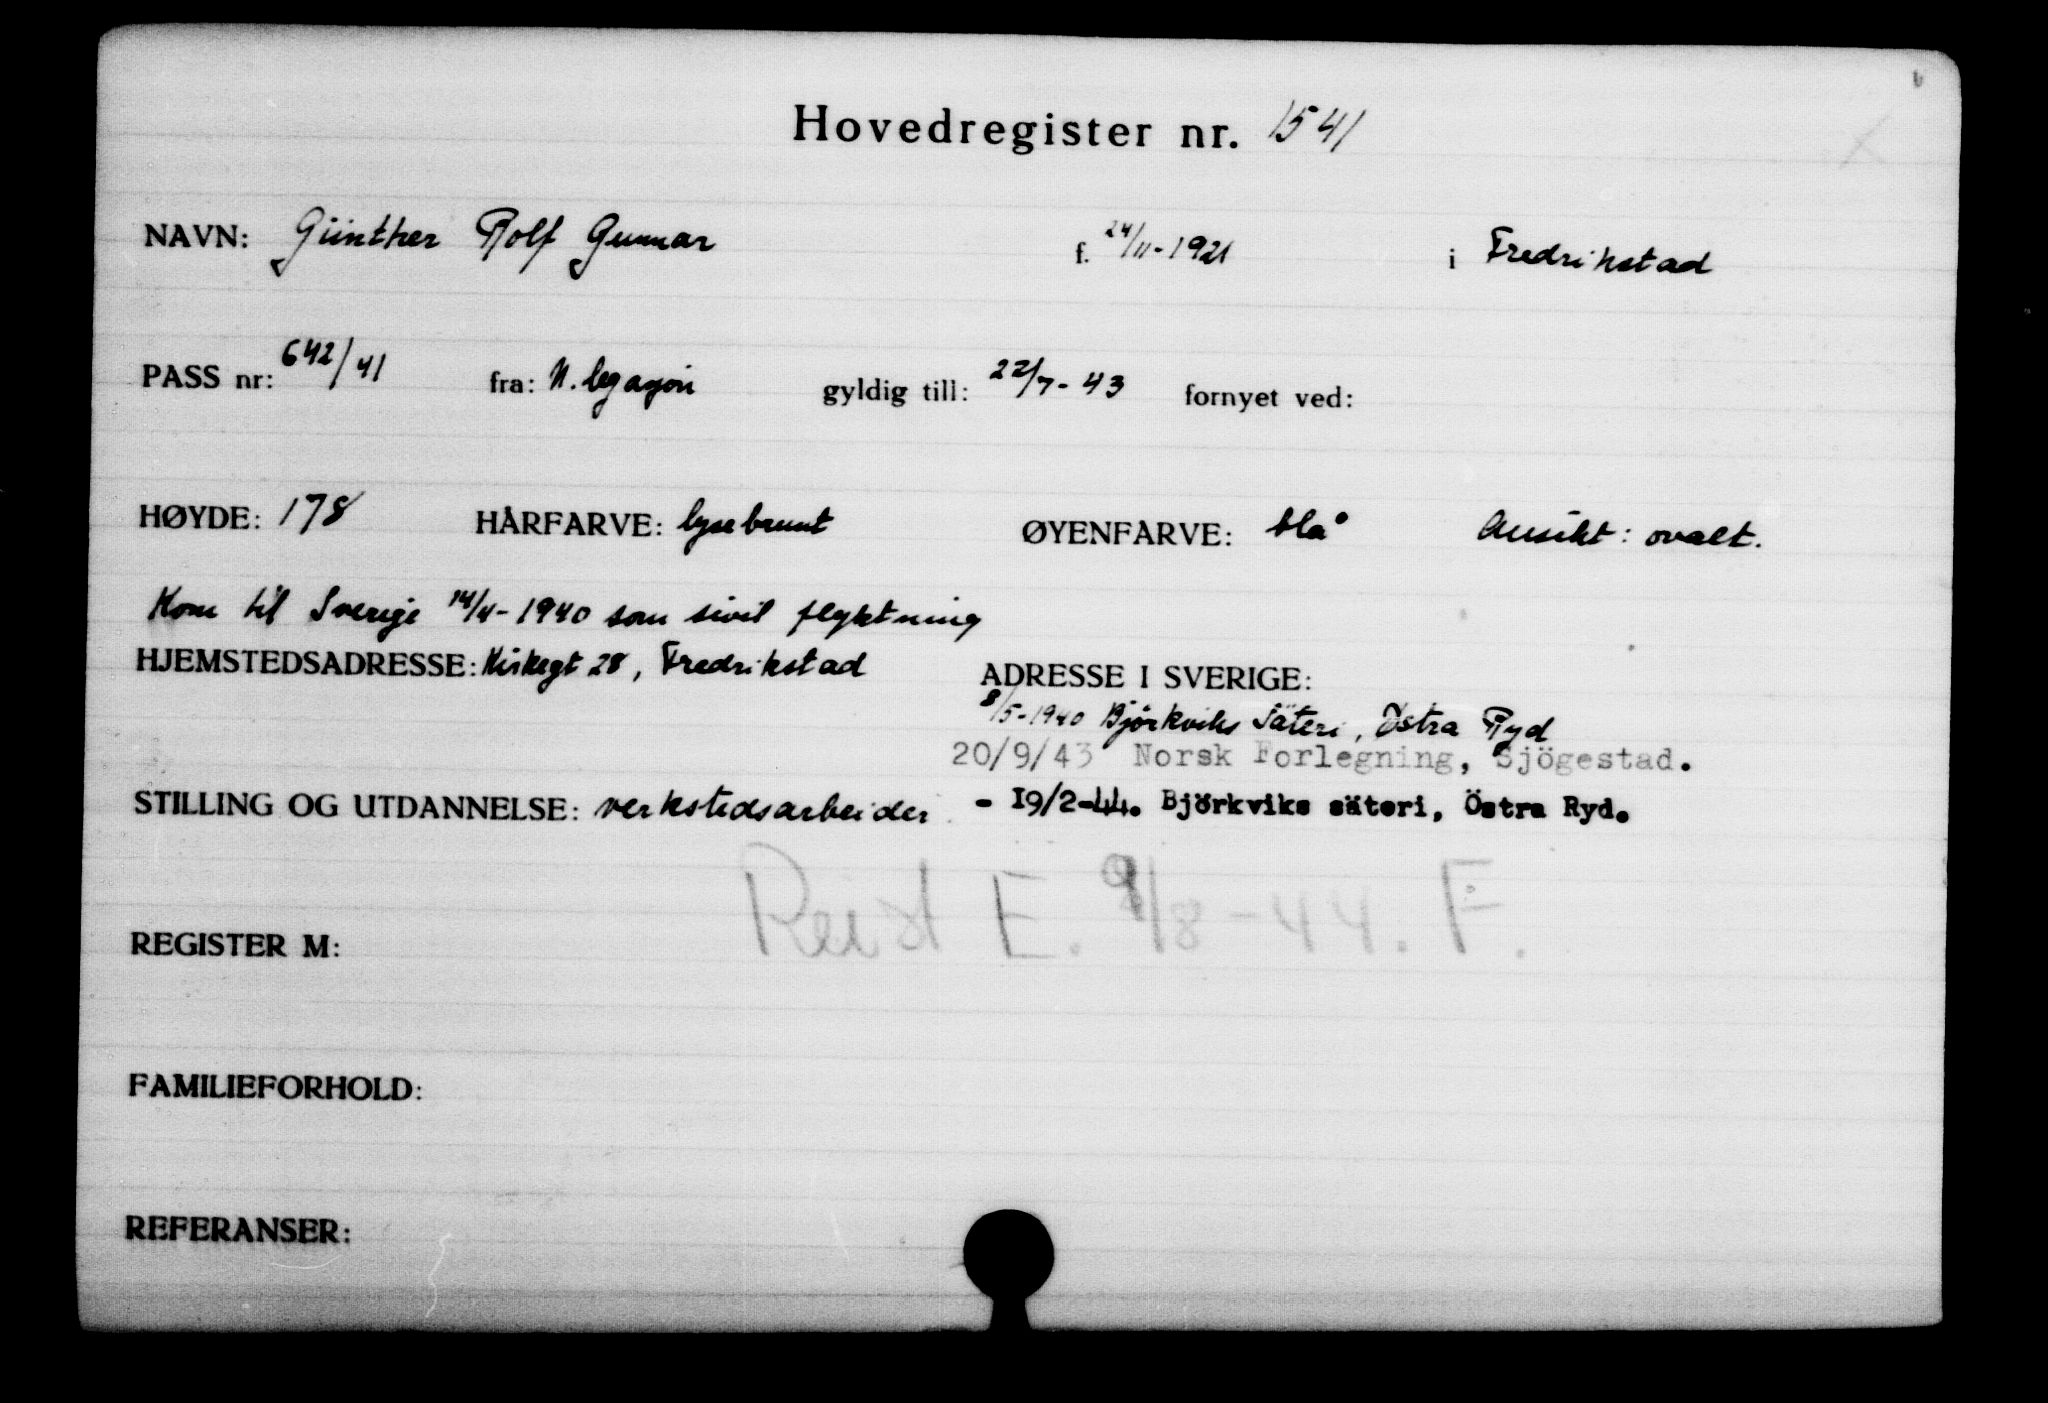 Hovedregister nr. 1541
NAVN: Günther Rolf Gunnar f. 24/11-1921 i Fredrikstad
PASS nr: 642/41 fra: N. legasjon gyldig till: 22/7-43 fornyet ved:
HØYDE: 178 HÅRFARVE: lysebrunt ØYENFARVE: blå Ansikt: ovalt.
Kom til Sverige 14/4-1940 som sivil flyktning
HJEMSTEDSADRESSE: 28, Fredrikstad
ADRESSE I SVERIGE:
8/5-1940 Björkviks Säteri, Östra Ryd
20/9/43 Norsk Forlegning, Sjögestad.
STILLING OG UTDANNELSE: verkstedsarbeider - 19/2-44. Björkviks säteri, Östra Ryd.
Reist E. 9/8-44. F.
REGISTER M:
FAMILIEFORHOLD:
REFERANSER: